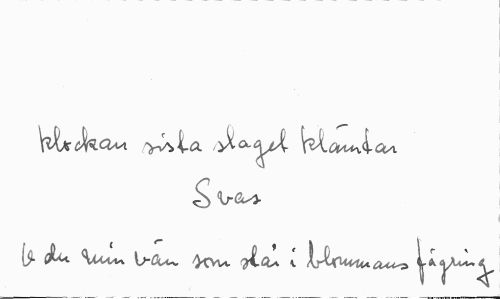 klockan sista slaget klämtar
Svas
du min vän som står i blommans fägring